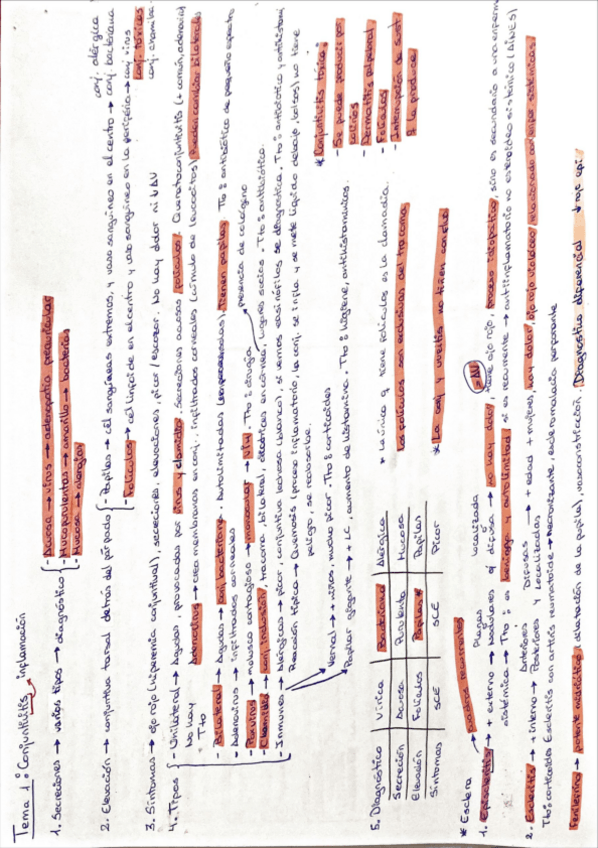 Tema 1: Conjuntivitis → inflamación
1. Secreciones → varios tipos → diagnóstico
- Acuosa → virus → adenopatía preauricular
- Mucopurulentas → amarillo → bacterias
- Mucosa → alergias
2. Elevación → conjuntiva tarsal detrás del párpado
- Papilas → cél sanguíneas extremos, y vaso sanguíneo en el centro → conj. alérgica
conj. bacteriana
- Folículos → cél linfoide en el centro y vaso sanguíneo en la periferia → conj virus
conj. tóxicas
conj. chamidia
3. Síntomas → ojo rojo (hiperemia conjuntival), secreciones, elevaciones, picor / escozor. No hay dolor ni ↓AV
4. Tipos
- Unilateral → Agudas, provocadas por virus y clamidias. Secreciones acuosas, folículos. Queratoconjuntivitis (+ común, adenovirus)
No hay Tto
Adenovirus → crea membranas en conj. infiltrados corneales (cúmulo de leucocitos) Pueden cambiar bilateral
- Bilateral → Agudas → conj bacteriana. Autolimitadas. Tienen papilas. Tto: antibiótico de pequeño espectro
- Adenovirus → infiltrados corneales
- Poxvirus → molusco contagioso → monoocular → VIH. Tto: cirugía
presencia de colágeno
- Clamidia → conj. inclusión, tracoma, bilateral, cicatrices en córnea, lugares sucios. Tto: antibiótico
- Inmunes → Alérgicas → picor, conjuntiva lechosa (blanca), si vemos eosinófilos se diagnostica. Tto: antibiótico y antihistamí
Reacción típica → Quemosis (proceso inflamatorio, la conj. se infla y se mete líquido debajo, bolsas) no tiene peligro, se reabsorbe.
Vernal → + niños, mucho picor. Tto: corticoides
Papilar gigante → + LC, aumento de histamina. Tto: higiene, antihistamínicos.
* Conjuntivitis tóxica:
- Se puede producir por colirios
- Dermatitis palpebral
- Folículos
- Interrupción de sust. q la produce
5. Diagnóstico | Vírica | Bacteriana | Alérgica
Secreción | Acuosa | Purulenta | Mucosa
Elevación | Folículos | Papilas * | Papilas
Síntomas | SCE | SCE | Picor
* La única q tiene folículos es la clamidia.
Los folículos son exclusivas del tracoma
* La conj y uveítis no tiñen con fluo
* Esclera
cuadros recurrentes
1. Episcleritis → + externo → Nodulares o difusa → no hay dolor, tiene ojo rojo, proceso idiopático, sino es secundario a una enferm
Plagas
localizada
= AV
sistémica → Tto: es benigno y autolimitad, si es recurrente → antiinflamatorio no esteroideo sistémico (AINES)
2. Escleritis → + interno → Anteriores
Posteriores y
Difusas
Localizadas
→ + edad + mujeres, hay dolor, ojo rojo violáceo, relacionado con enfer sistémicas.
Tto: corticoides Escleritis con artritis reumatoide → Necrotizante, escleromalacia perforante
Fenilefrina → potente midriático (dilatación de la pupila), vasoconstricción. Diagnóstico diferencial ↓ rojo epi